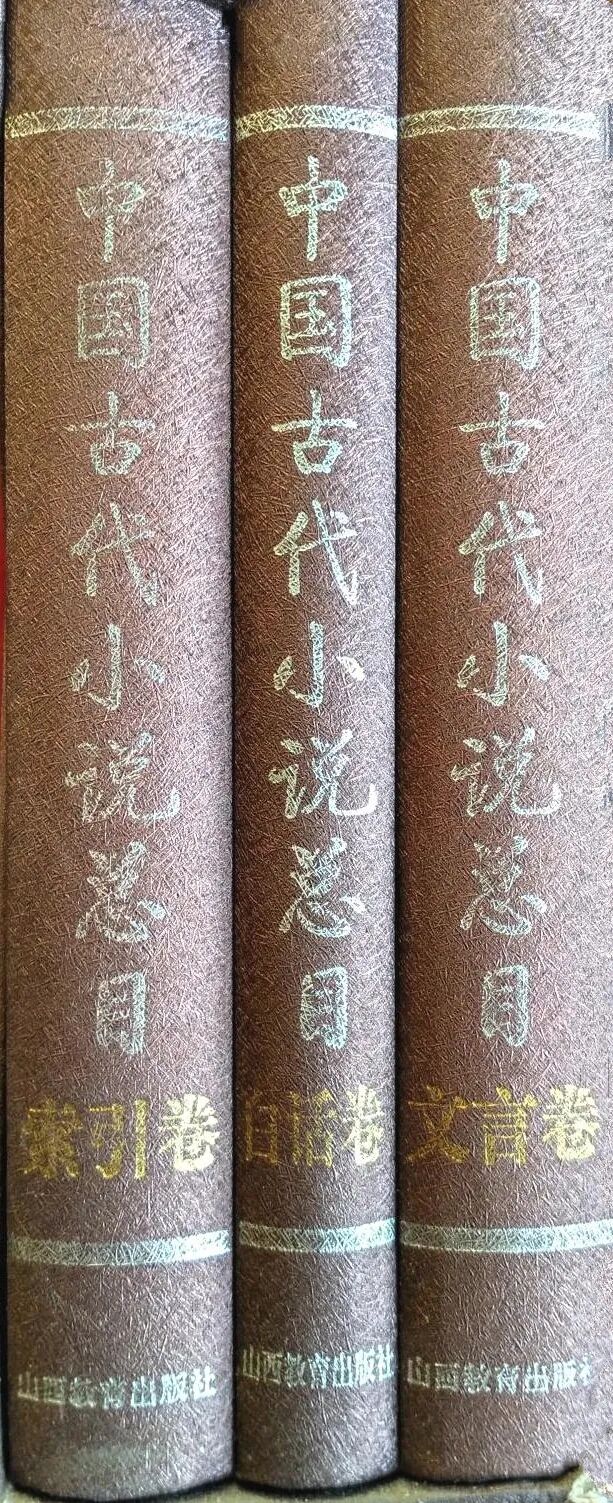 中国古代小说总目
索引卷
山西教育出版社
中国古代小说总目
白话卷
山西教育出版社
中国古代小说总目
文言卷
山西教育出版社